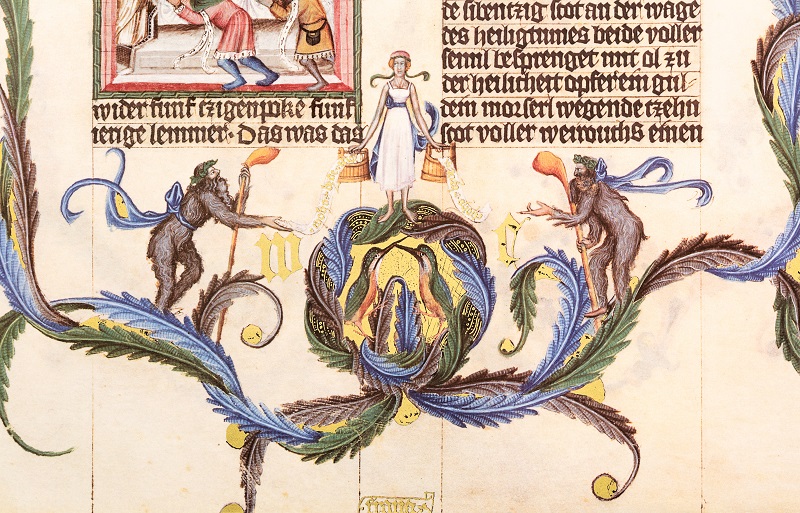 wider funf tzigenpoke funf
ierige lemmer· Das was das
de sibentzig scot an der wage
des heiligtumes beide voller
semil besprenget mit ol zu
der heilicheit opfer ein gul-
dem morserl wegende tzehn
scot voller weirouchs einen
w e